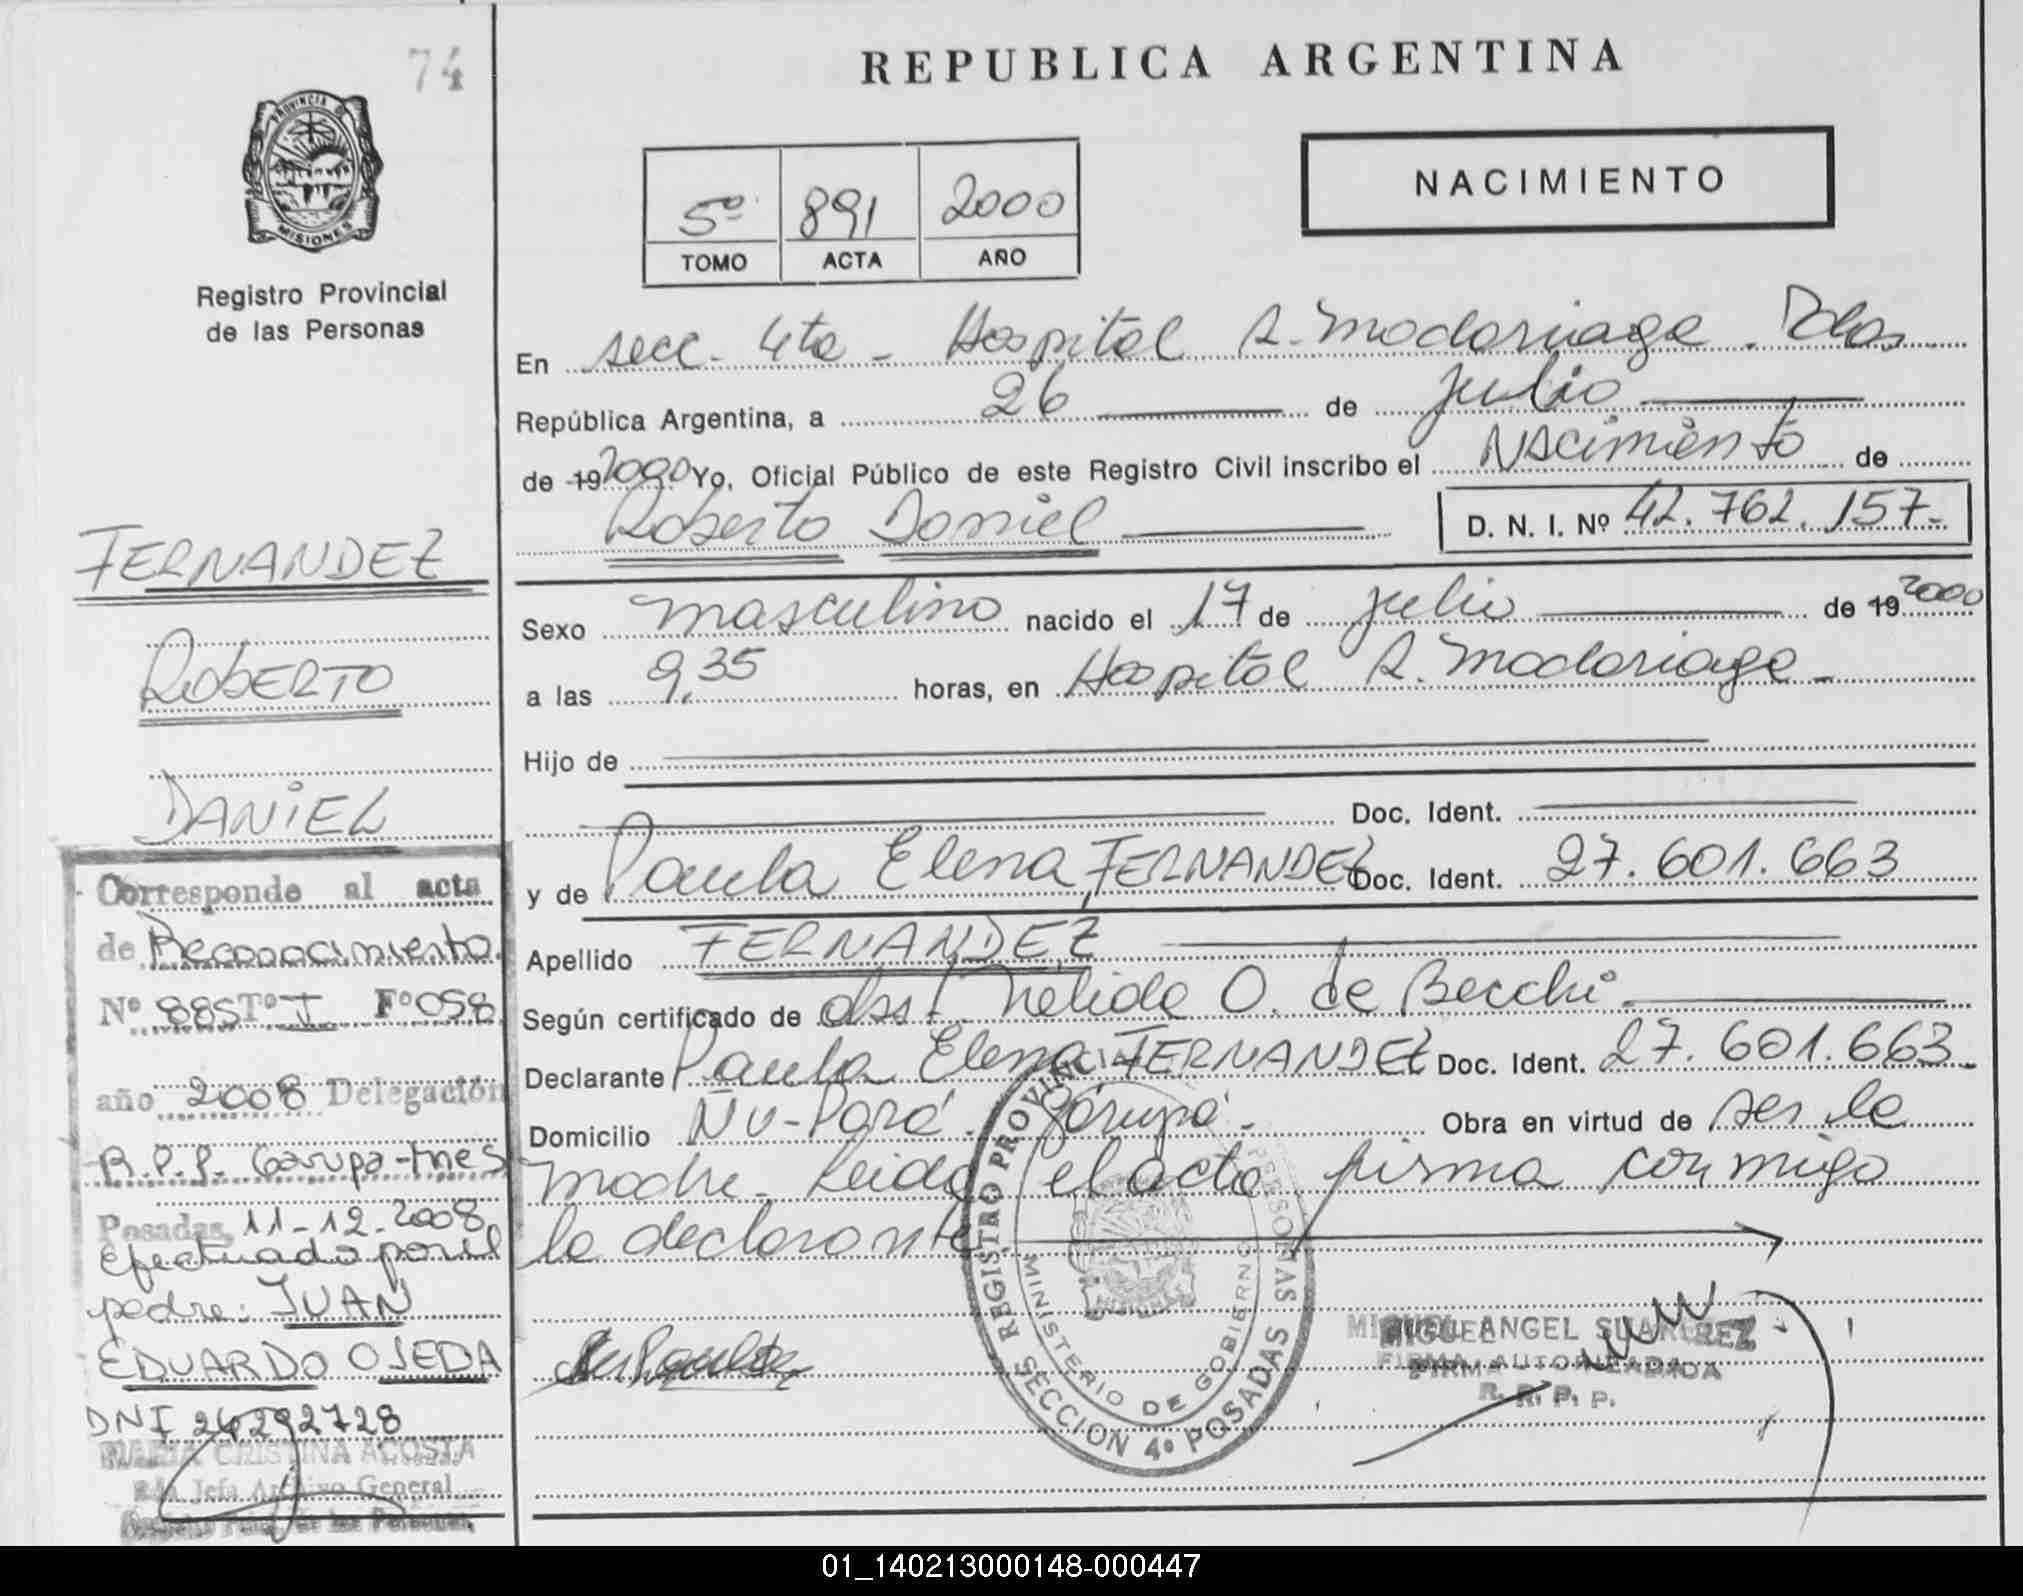 74
REPUBLICA ARGENTINA
PROVINCIA DE
MISIONES
Registro Provincial
de las Personas
5º 891 2000
TOMO ACTA AÑO
NACIMIENTO
En secc. 4ta - Hospital R. Madariaga. Pdas.
República Argentina, a 26 de Julio
de 19 2000 Yo, Oficial Público de este Registro Civil inscribo el Nacimiento de
Roberto Daniel D. N. I. Nº 42.762.157.-
Sexo masculino nacido el 17 de Julio de 19 2000
a las 9,35 horas, en Hospital R. Madariaga -
Hijo de
Doc. Ident.
y de Paula Elena FERNANDEZ Doc. Ident. 27.601.663
Apellido FERNANDEZ
Según certificado de obst. Nelida O. de Becchi
Declarante Paula Elena FERNANDEZ Doc. Ident. 27.601.663
Domicilio Ñu-Porá. Garupá. Obra en virtud de ser la
madre. Leida el acta firma conmigo
la declarante
FERNANDEZ
ROBERTO
DANIEL
Corresponde al acta
de Reconocimiento
Nº 885 Tº I Fº 058
año 2008 Delegación
R.P.P. Garupa-Mnes
Posadas, 11-12-2008
Efectuado por el
padre: JUAN
EDUARDO OJEDA
DNI 24292728
MARIA CRISTINA ACOSTA
Jefa Archivo General
REGISTRO PROVINCIAL PERSONAS
MINISTERIO DE GOBIERNO
SECCION 4º POSADAS
MIGUEL ANGEL SUAREZ
FIRMA AUTORIZADA
R. P. P.
01_140213000148-000447